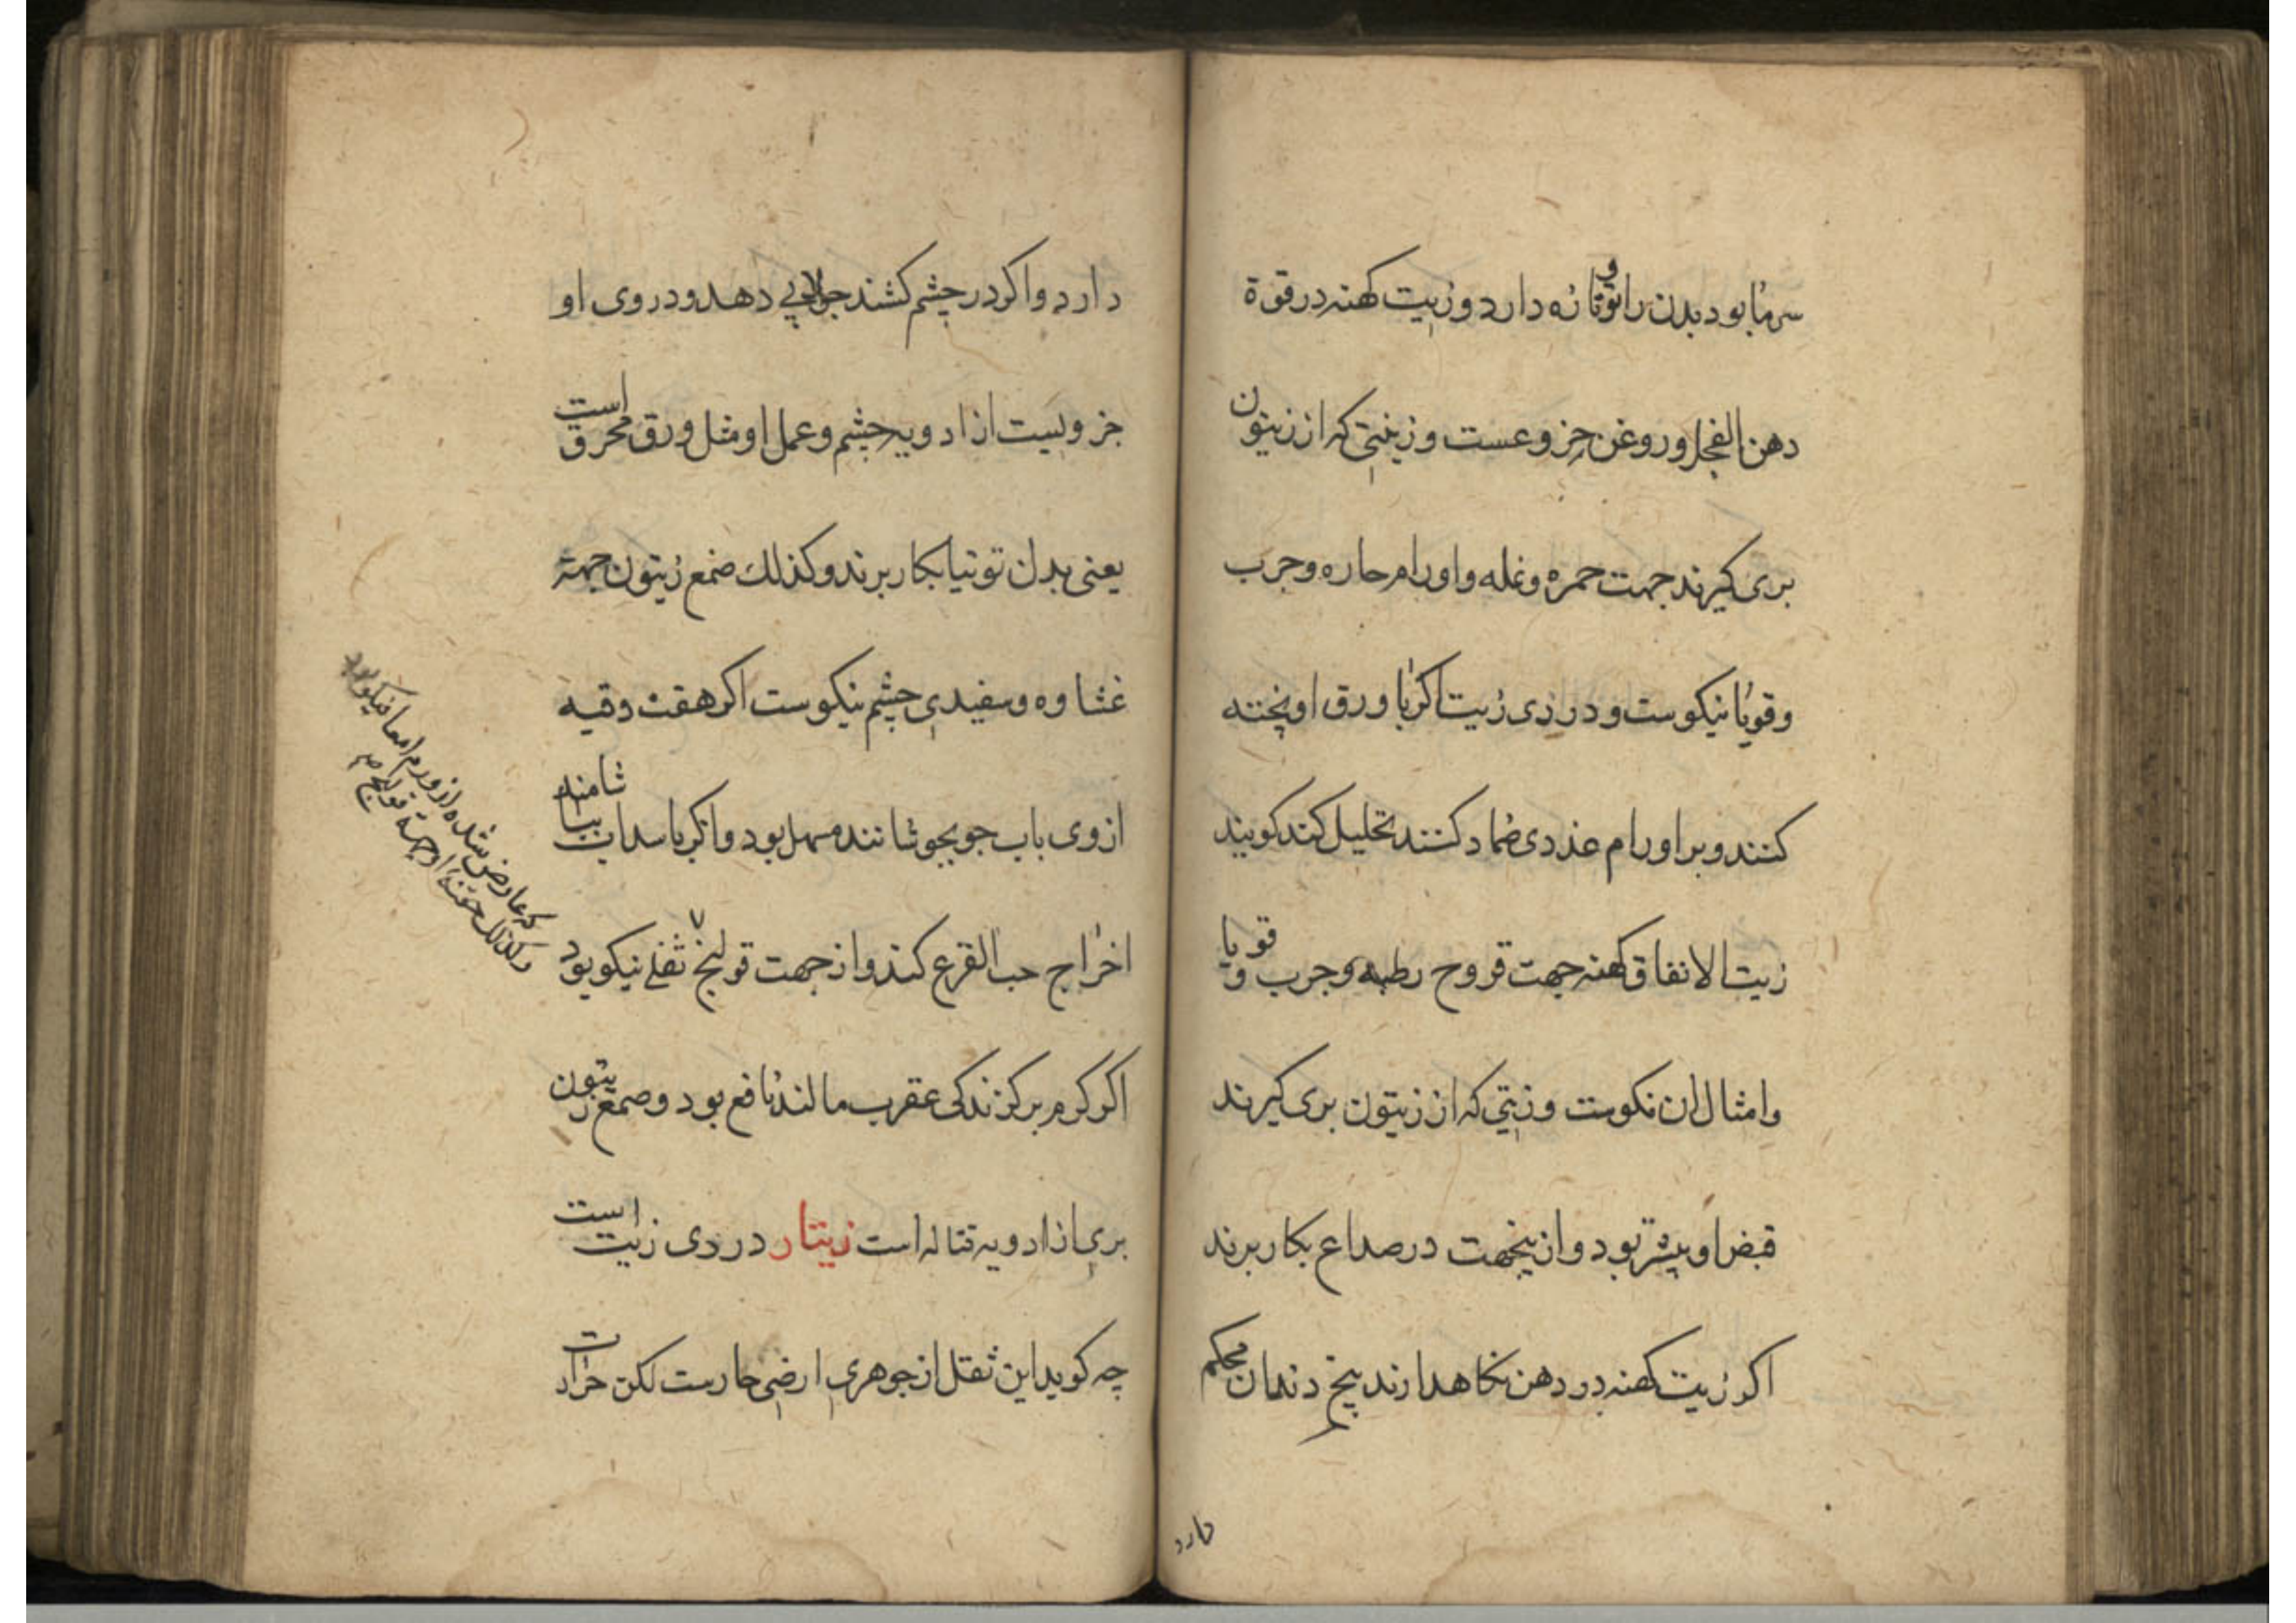 سرما بود بدن را قوّتا زه دارد و زیت کهنه در قوة
دهن الفجل و روغن خروعست و زیتی که از زیتون
بری کیرند جهت حمره و نمله و اورام حاره و جرب
و قوبا نیکوست و دردی زیت اکر با ورق او پخته
کنند و بر اورام غددی ضماد کنند تحلیل کند کویند
زیت الانفاق کهنه جهت قروح رطبه و جرب و قوبا
و امثال ان نکوست و زیتی که از زیتون بری کیرند
قبض او بیشتر بود و ازینجهت در صداع بکار برند
اکر زیت کهنه در دهن نکاهدارند بیخ دندان محکم
دارد
دارد و اکر در چشم کشند جلایی دهد و دردی او
جزویست از ادویه چشم و عمل او مثل ورق محرق است
یعنی بدل توتیا بکار برند و کذلك صمغ زیتون جهة
غشاوه و سفیدی چشم نیکوست اکر هفت وقیه
ازوی باب جو بجوشانند مسهل بود و اکر با سداب بیاشامند
اخراج حب القرع کند و از جهت قولنج ثفلی نیکو بود
که عارض شده از ورم امعا نیکو بود
و کذلك حقنه او جهة قولنج صح
اکر کرم بر کزندکی عقرب مالند نافع بود و صمغ زیتون
بری از ادویه قتاله است زیتار دردی زیت است
چه کوید این ثقل از جوهری ارضی حارست لکن حرارت